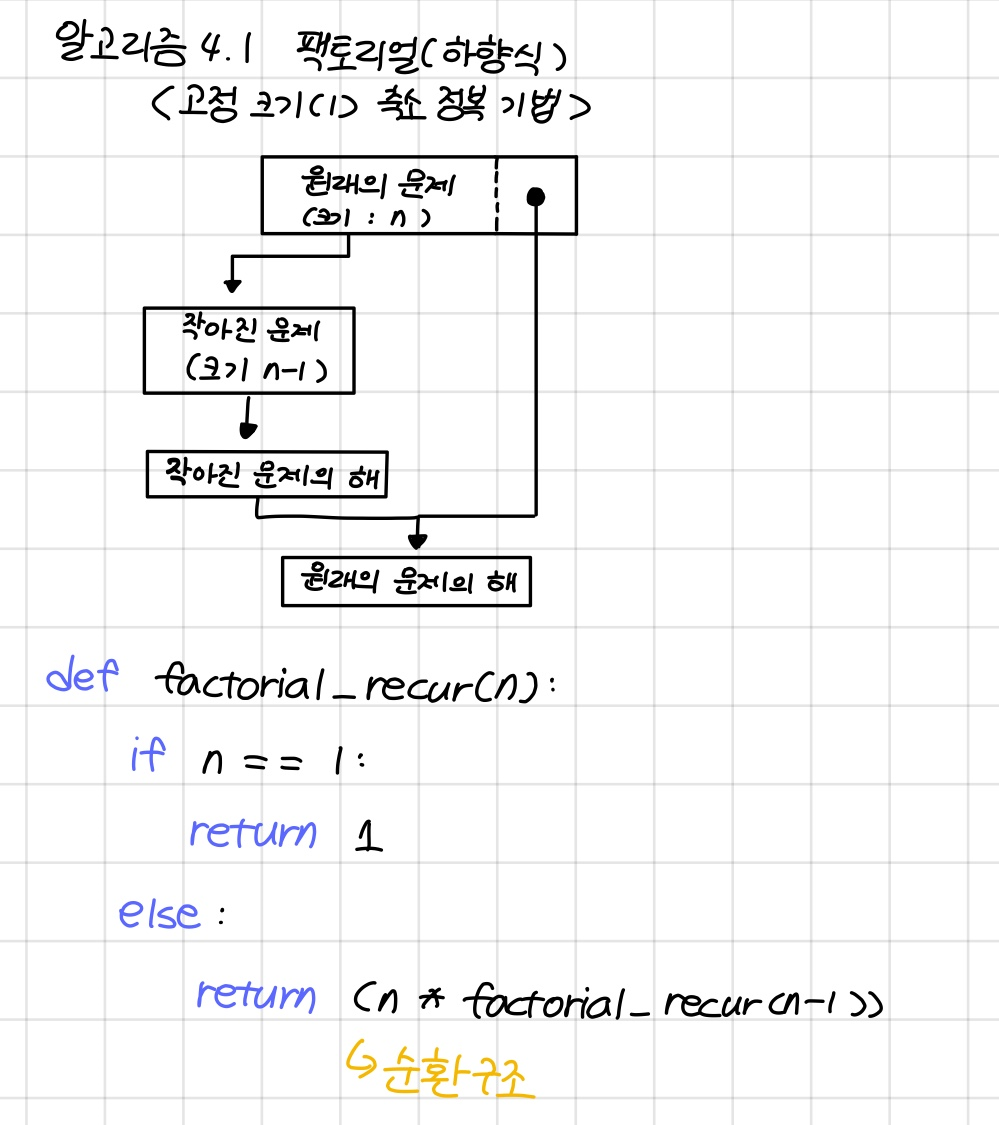 알고리즘 4.1 팩토리얼(하향식)
<고정 크기(1) 축소 정복 기법>
원래의 문제
(크기 : n)
작아진 문제
(크기 n-1)
작아진 문제의 해
원래의 문제의 해
def factorial_recur(n):
if n == 1:
return 1
else:
return (n * factorial_recur(n-1))
↳순환구조